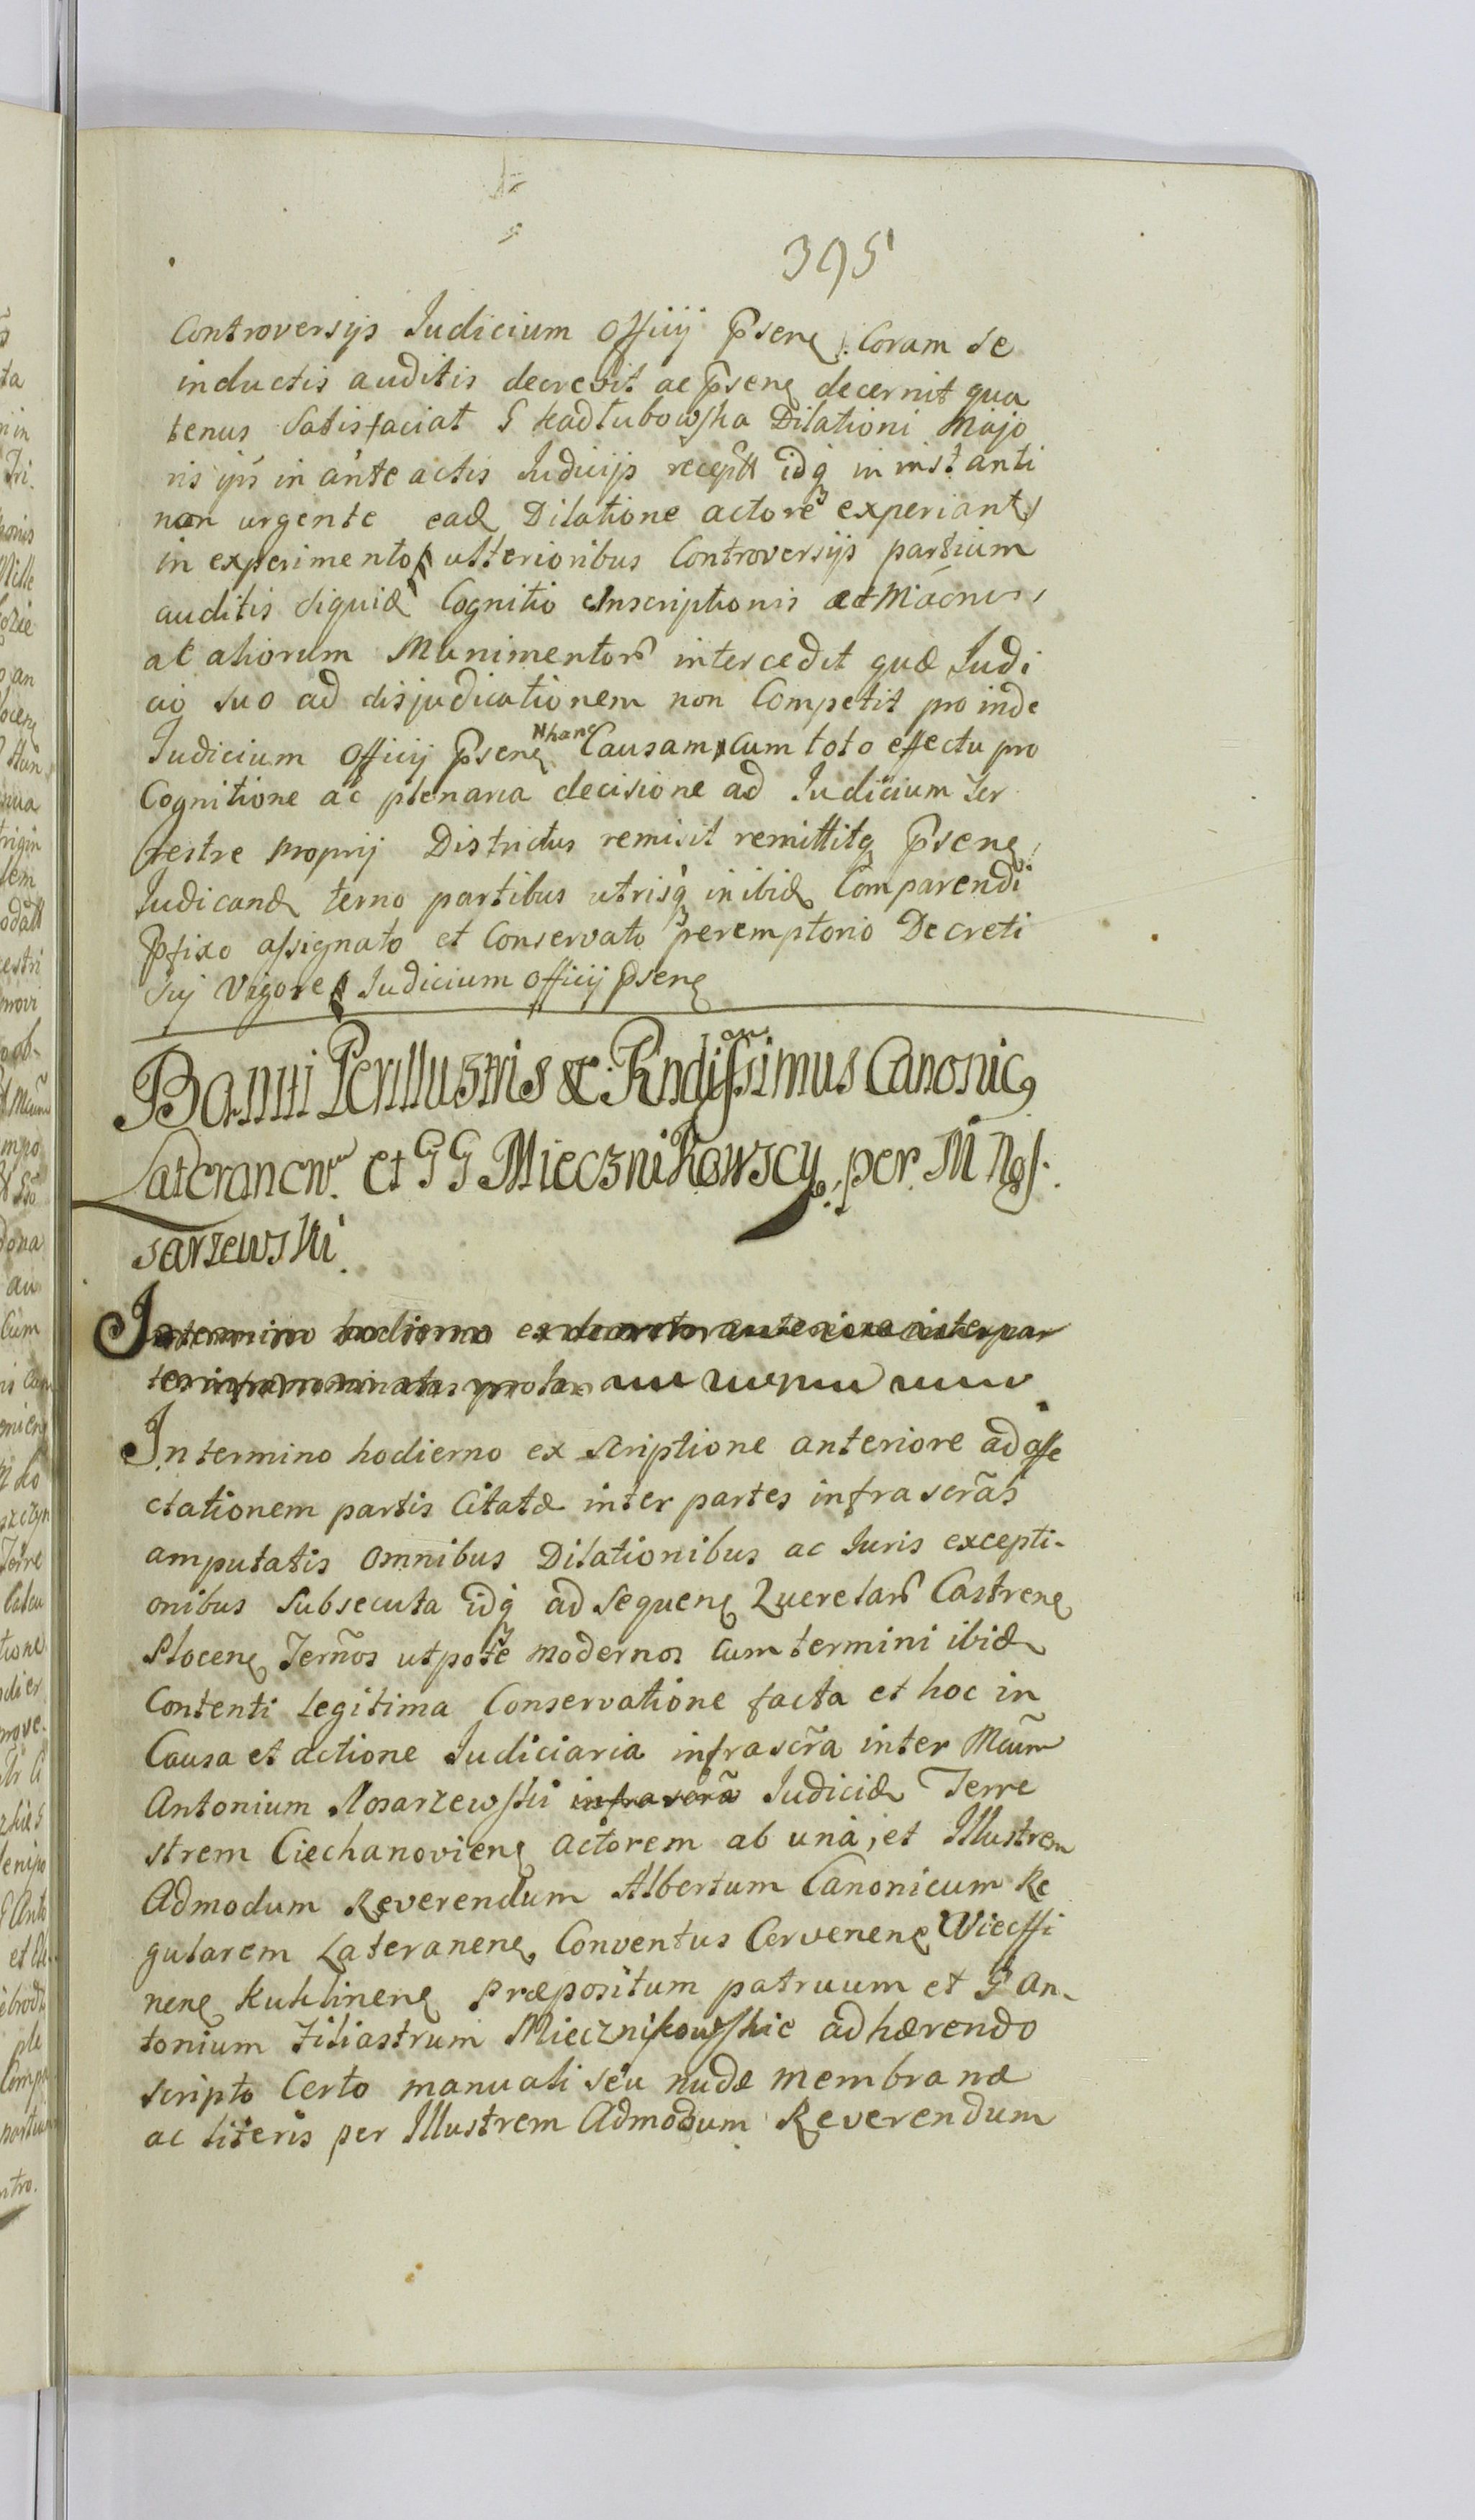 395
Controversijs Judicium Officij Psens. Coram se
inductis auditis decrevit ac Psens decernit qua
tenus Satisfaciat G Kadłubowska Dilationi Majo
ris in ante actis Judicijs idq in instanti
non urgente ead Dilatione actore experiant
in experimento ulterioribus Controversijs partium
auditis siquid Cognitio Inscriptionis
ac aliorum Munimentor intercedit quæ Judi
cio suo ad disjudicationem non Competit proinde
Judicium Officij Psens Nhanc Causam cum toto effectu pro
Cognitione ac plenaria decisione ad Judicium Ter
restre proprij Districtus remisit remittitq Psens
Judicand termo partibus utrisq inibid Comparendi
Pfixo assignato et Conservato peremptorio Decreti
sui Vigore Judicium Officij Psens
Banni Perillustris & Rndissimus Canonic9
Lateranen. et GG Miecznikowscy per M Nos.
sarzewski.
In termino hodierno ex anteriore inter par
tes
In termino hodierno ex scriptione anteriore ad affe
ctationem partis Citatæ inter partes infrascrãs
amputatis omnibus Dilationibus ac Juris excepti-
onibus Subsecuta idq ad sequens Querelar Castrens
Plocens Termos utpote modernos cum termini ibid
Contenti legitima Conservatione facta et hoc in
Causa et actione Judiciaria infrascrã inter Mcum
Antonium Nosarzewski infrascrã Judicid Terre
strem Ciechanoviens actorem ab una, et Illustrem
Admodum Reverendum Albertum Canonicum Re
gularem Lateranens Conventus Cervenens Wieczffi
nens Kuklinens Præpositum patruum et G An-
tonium filiastrum Miecznikowskie adhærendo
scripto certo manuali seu nudæ membranæ
ac literis per Illustrem Admodum Reverendum